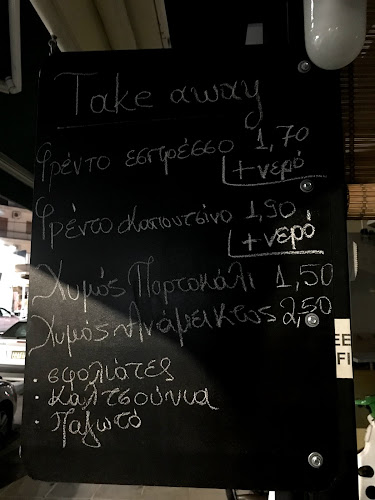 Take away
Φρέντο εσπρέσσο 1,70
+νερό
Φρέντο καπουτσίνο 1,90
+νερό
Χυμός Πορτοκάλι 1,50
Χυμός Ανάμεικτος 2,50
· σφολιάτες
· καλτσούνια
· Παγωτό